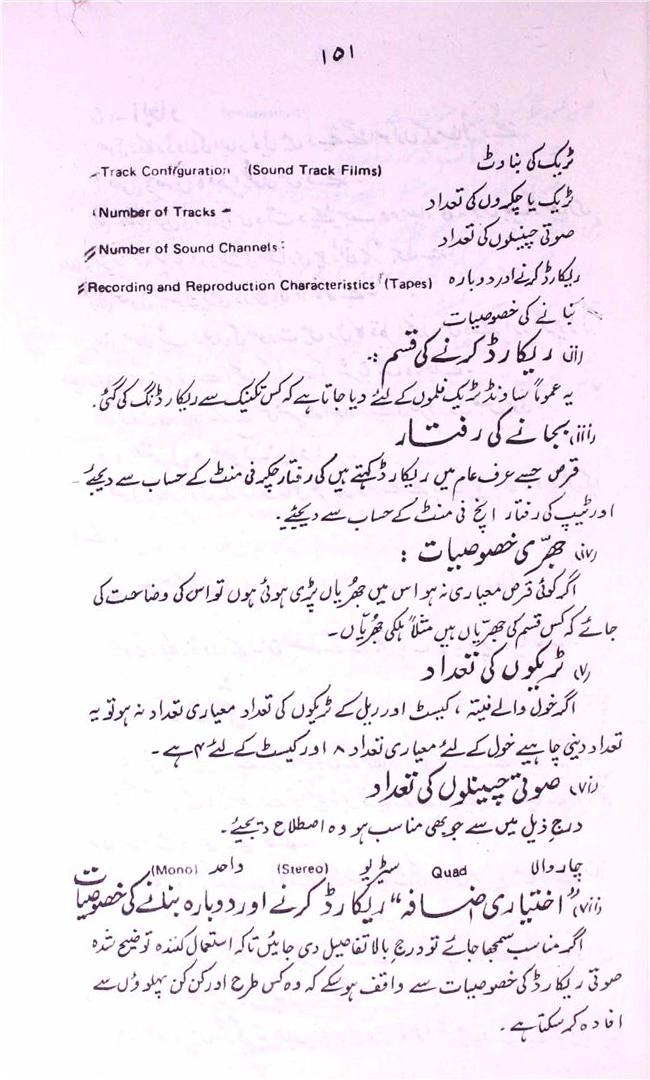 ۱۵۱
ٹریک کی بناوٹ Track Configuration (Sound Track Films)
ٹریک یا چکروں کی تعداد Number of Tracks
صوتی چینلوں کی تعداد Number of Sound Channels:
ریکارڈ کرنے اور دوبارہ Recording and Reproduction Characteristics (Tapes)
بنانے کی خصوصیات
(ii) ریکارڈ کرنے کی قسم :۔
یہ عموماً ساؤنڈ ٹریک فلموں کے لئے دیا جاتا ہے کہ کس تکنیک سے ریکارڈنگ کی گئی۔
(iii) بجانے کی رفتار
قرص جسے عرف عام میں ریکارڈ کہتے ہیں کی رفتار چکر فی منٹ کے حساب سے دیجئے۔
اور ٹیپ کی رفتار انچ فی منٹ کے حساب سے دیجئے۔
(iv) جھرّی خصوصیات :
اگر کوئی قرص معیاری نہ ہو اس میں جھریاں پڑی ہوئی ہوں تو اس کی وضاحت کی
جائے کہ کس قسم کی جھرّیاں ہیں مثلاً ہلکی جھرّیاں۔
(v) ٹریکوں کی تعداد
اگر خول والے فیتہ ، کیسٹ اور ریل کے ٹریکوں کی تعداد معیاری تعداد نہ ہو تو یہ
تعداد دینی چاہیے خول کے لئے معیاری تعداد ۸ اور کیسٹ کے لئے ۴ ہے۔
(vi) صوتی چینلوں کی تعداد
درج ذیل میں سے جو بھی مناسب ہو وہ اصطلاح دیجیئے۔
چار والا Quad سٹریو (Stereo) واحد (Mono)
(vii) "اختیاری اضافہ" ریکارڈ کرنے اور دوبارہ بنانے کی خصوصیات
اگر مناسب سمجھا جائے تو درج بالا تفاصیل دی جائیں تاکہ استعمال کنندہ توضیح شدہ
صوتی ریکارڈ کی خصوصیات سے واقف ہو سکے کہ وہ کس طرح اور کن کن پہلوؤں سے
افادہ کر سکتا ہے۔